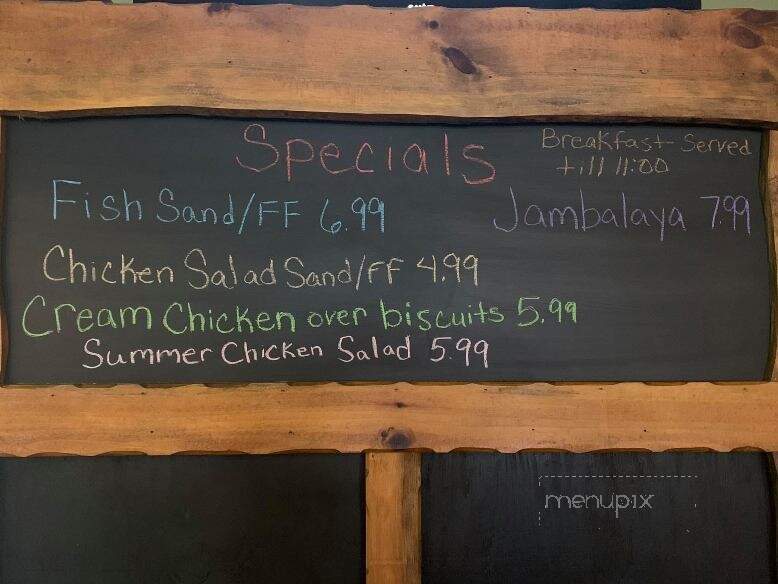 Specials
Breakfast Served
till 11:00
Fish Sand/FF 6.99
Jambalaya 7.99
Chicken Salad Sand/FF 4.99
Cream Chicken over biscuits 5.99
Summer Chicken Salad 5.99
menupix